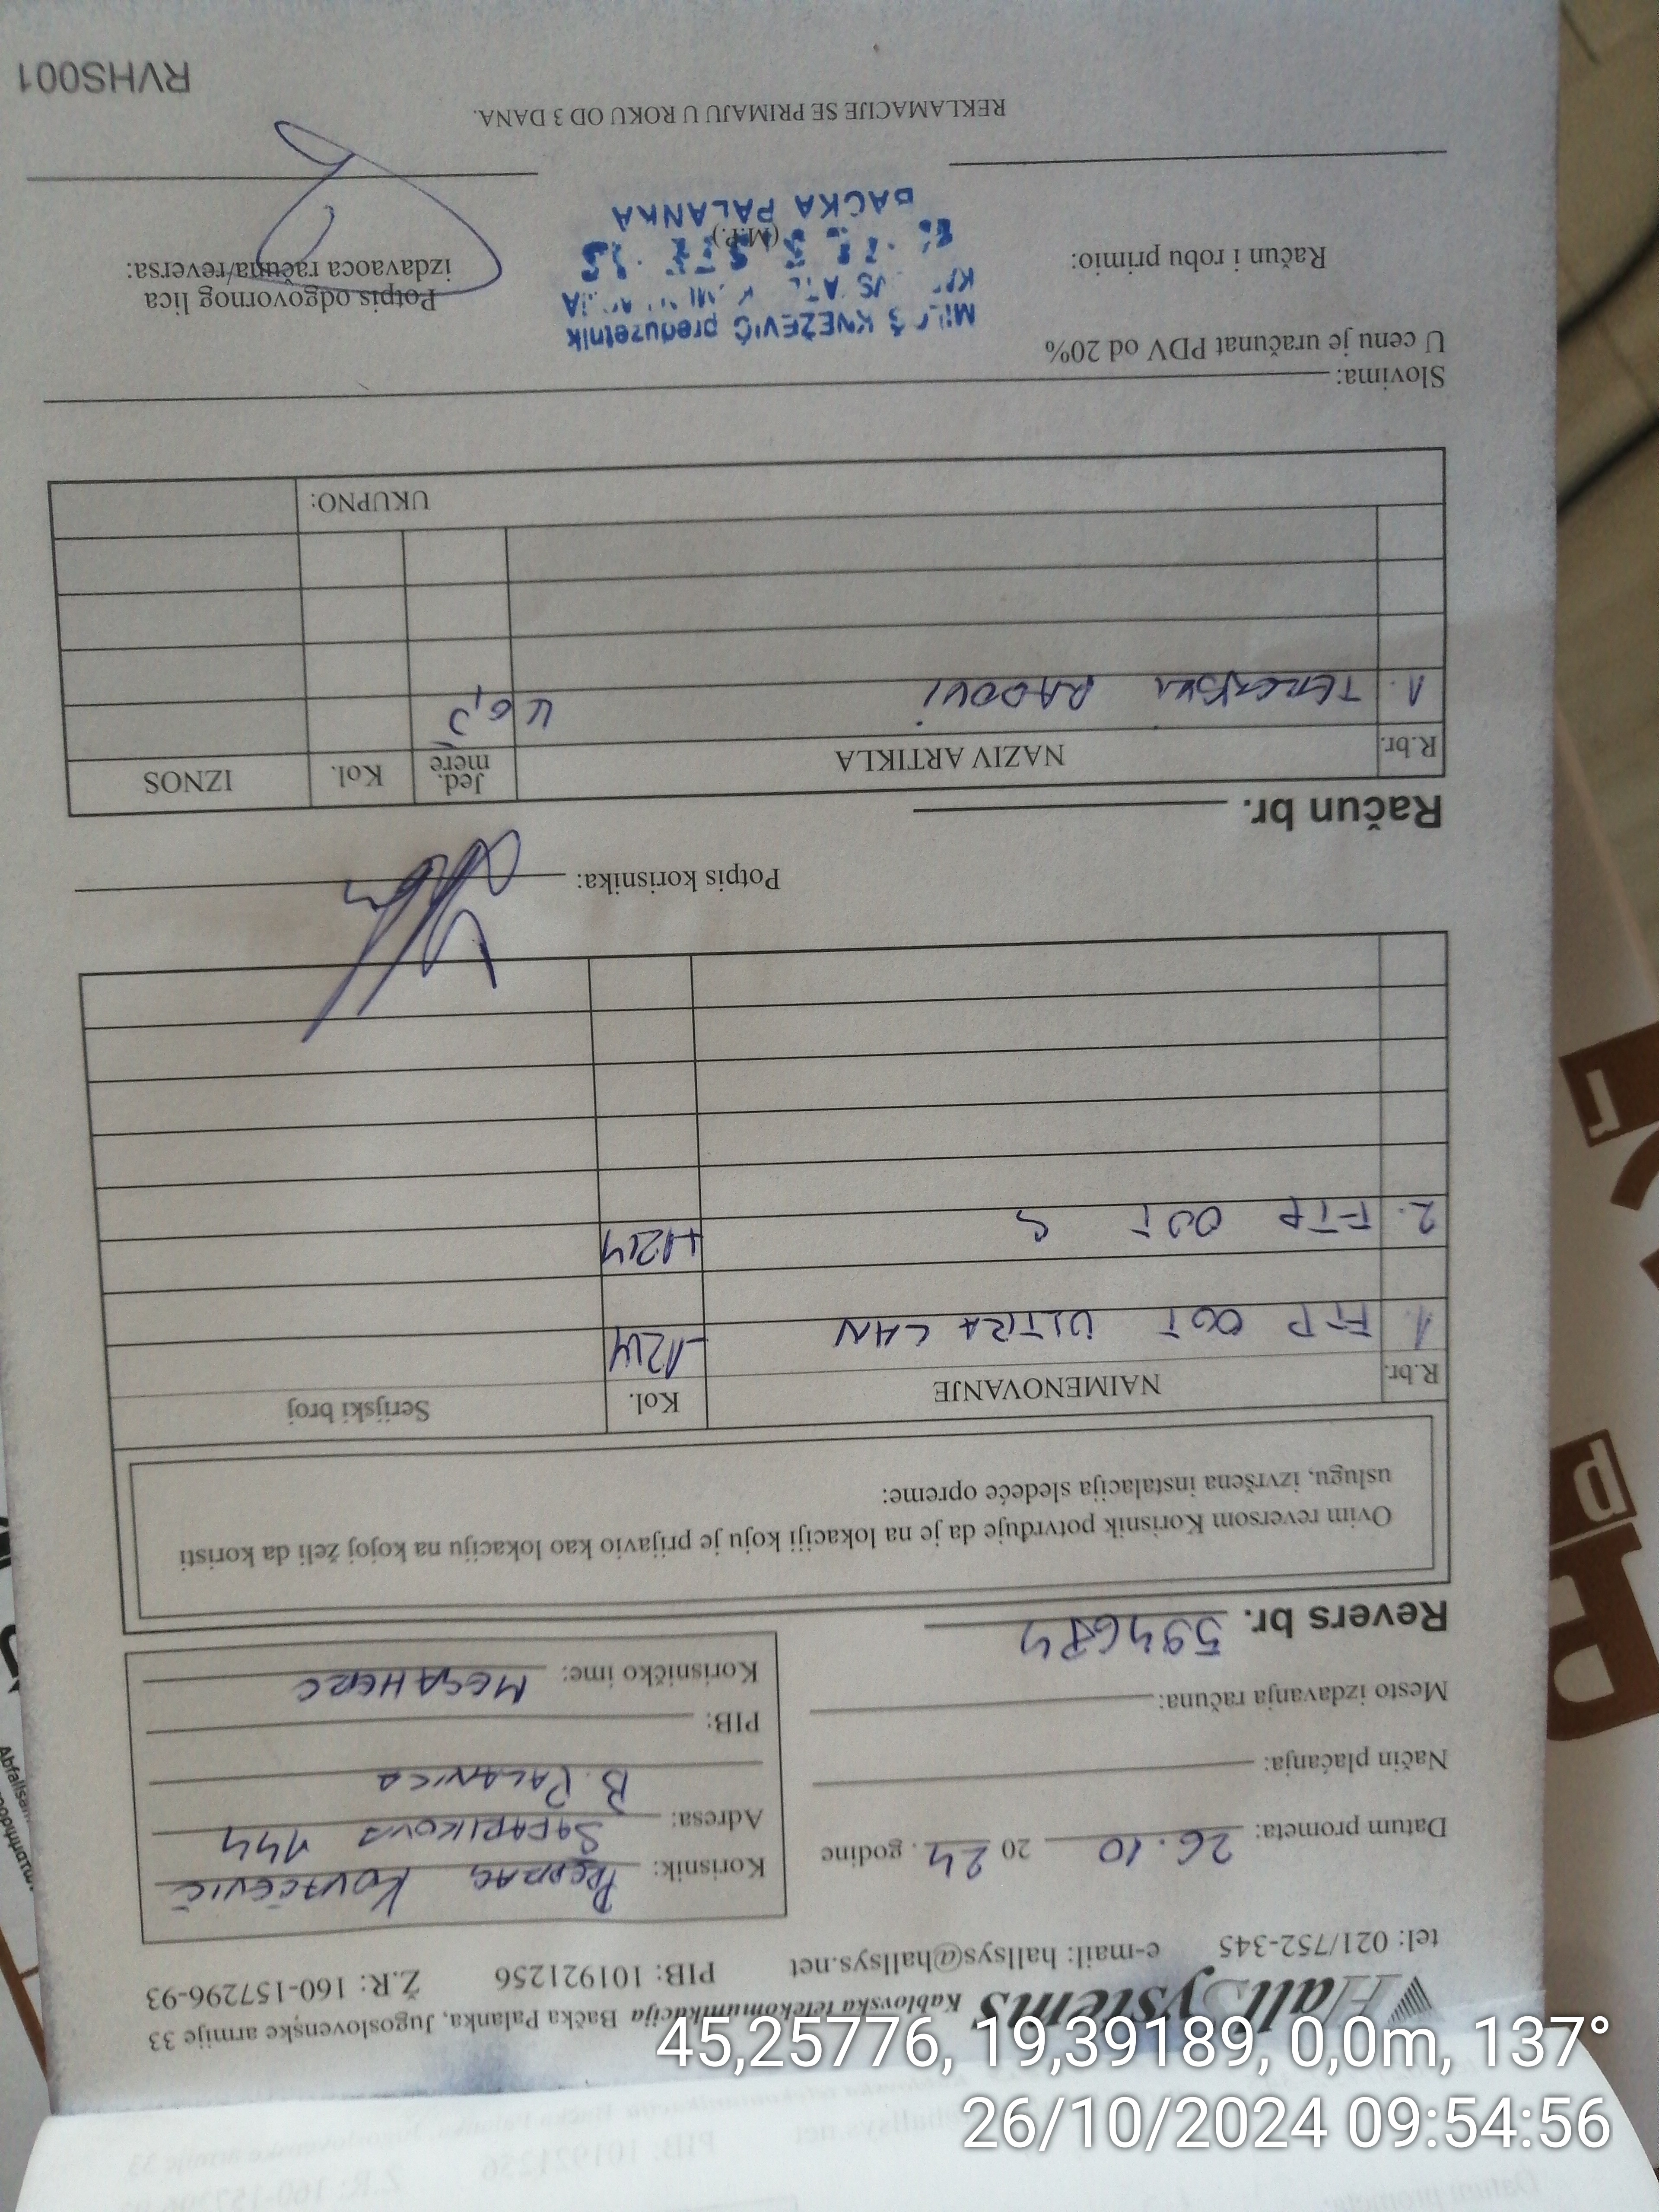 HallSystems Kablovska telekomunikacija Bačka Palanka, Jugoslovenske armije 33
tel: 021/752-345 e-mail: hallsys@hallsys.net PIB: 101921256 Ž.R: 160-157296-93
Datum prometa: 26.10 20 24. godine
Način plaćanja:
Mesto izdavanja računa:
Revers br. 594684
Korisnik: PREDRAG KOVAČEVIĆ
Adresa: ŠAFARIKOVA 144
B. PALANKA
PIB:
Korisničko ime: MEGAHERC
Ovim reversom Korisnik potvrđuje da je na lokaciji koju je prijavio kao lokaciju na kojoj želi da koristi
uslugu, izvršena instalacija sledeće opreme:
R.br. NAIMENOVANJE Kol. Serijski broj
1. FTP OUT ULTRA LAN -124
2. FTP OUT S +124
Potpis korisnika:
Račun br.
R.br. NAZIV ARTIKLA Jed. mere Kol. IZNOS
1. RADOVI
UKUPNO:
Slovima:
U cenu je uračunat PDV od 20%
MILOŠ KNEŽEVIĆ preduzetnik
BAČKA PALANKA
Račun i robu primio:
(M.P.)
Potpis odgovornog lica
izdavaoca računa/reversa:
REKLAMACIJE SE PRIMAJU U ROKU OD 3 DANA.
RVHS001
45,25776, 19,39189, 0,0m, 137°
26/10/2024 09:54:56